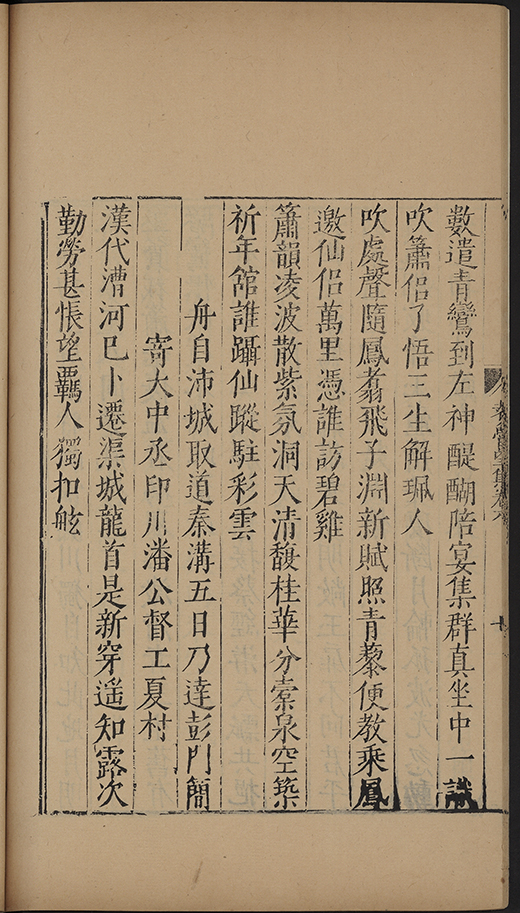 數遣青鸞到左神醍醐陪宴集群真坐中一識
吹簫侶了悟三生解珮人
吹處聲隨鳳翥飛子淵新賦照青藜便教乘鳳
邀仙侶萬里憑誰訪碧雞
簫韻凌波散紫氛洞天清馥桂華分橐泉空築
祈年舘誰躡仙蹤駐彩雲
舟自沛城取道秦溝五日乃達彭門簡
寄大中丞印川潘公督工夏村
漢代漕河巳卜遷渠城龍首是新穿遙知露次
勤勞甚悵望羈人獨扣舷